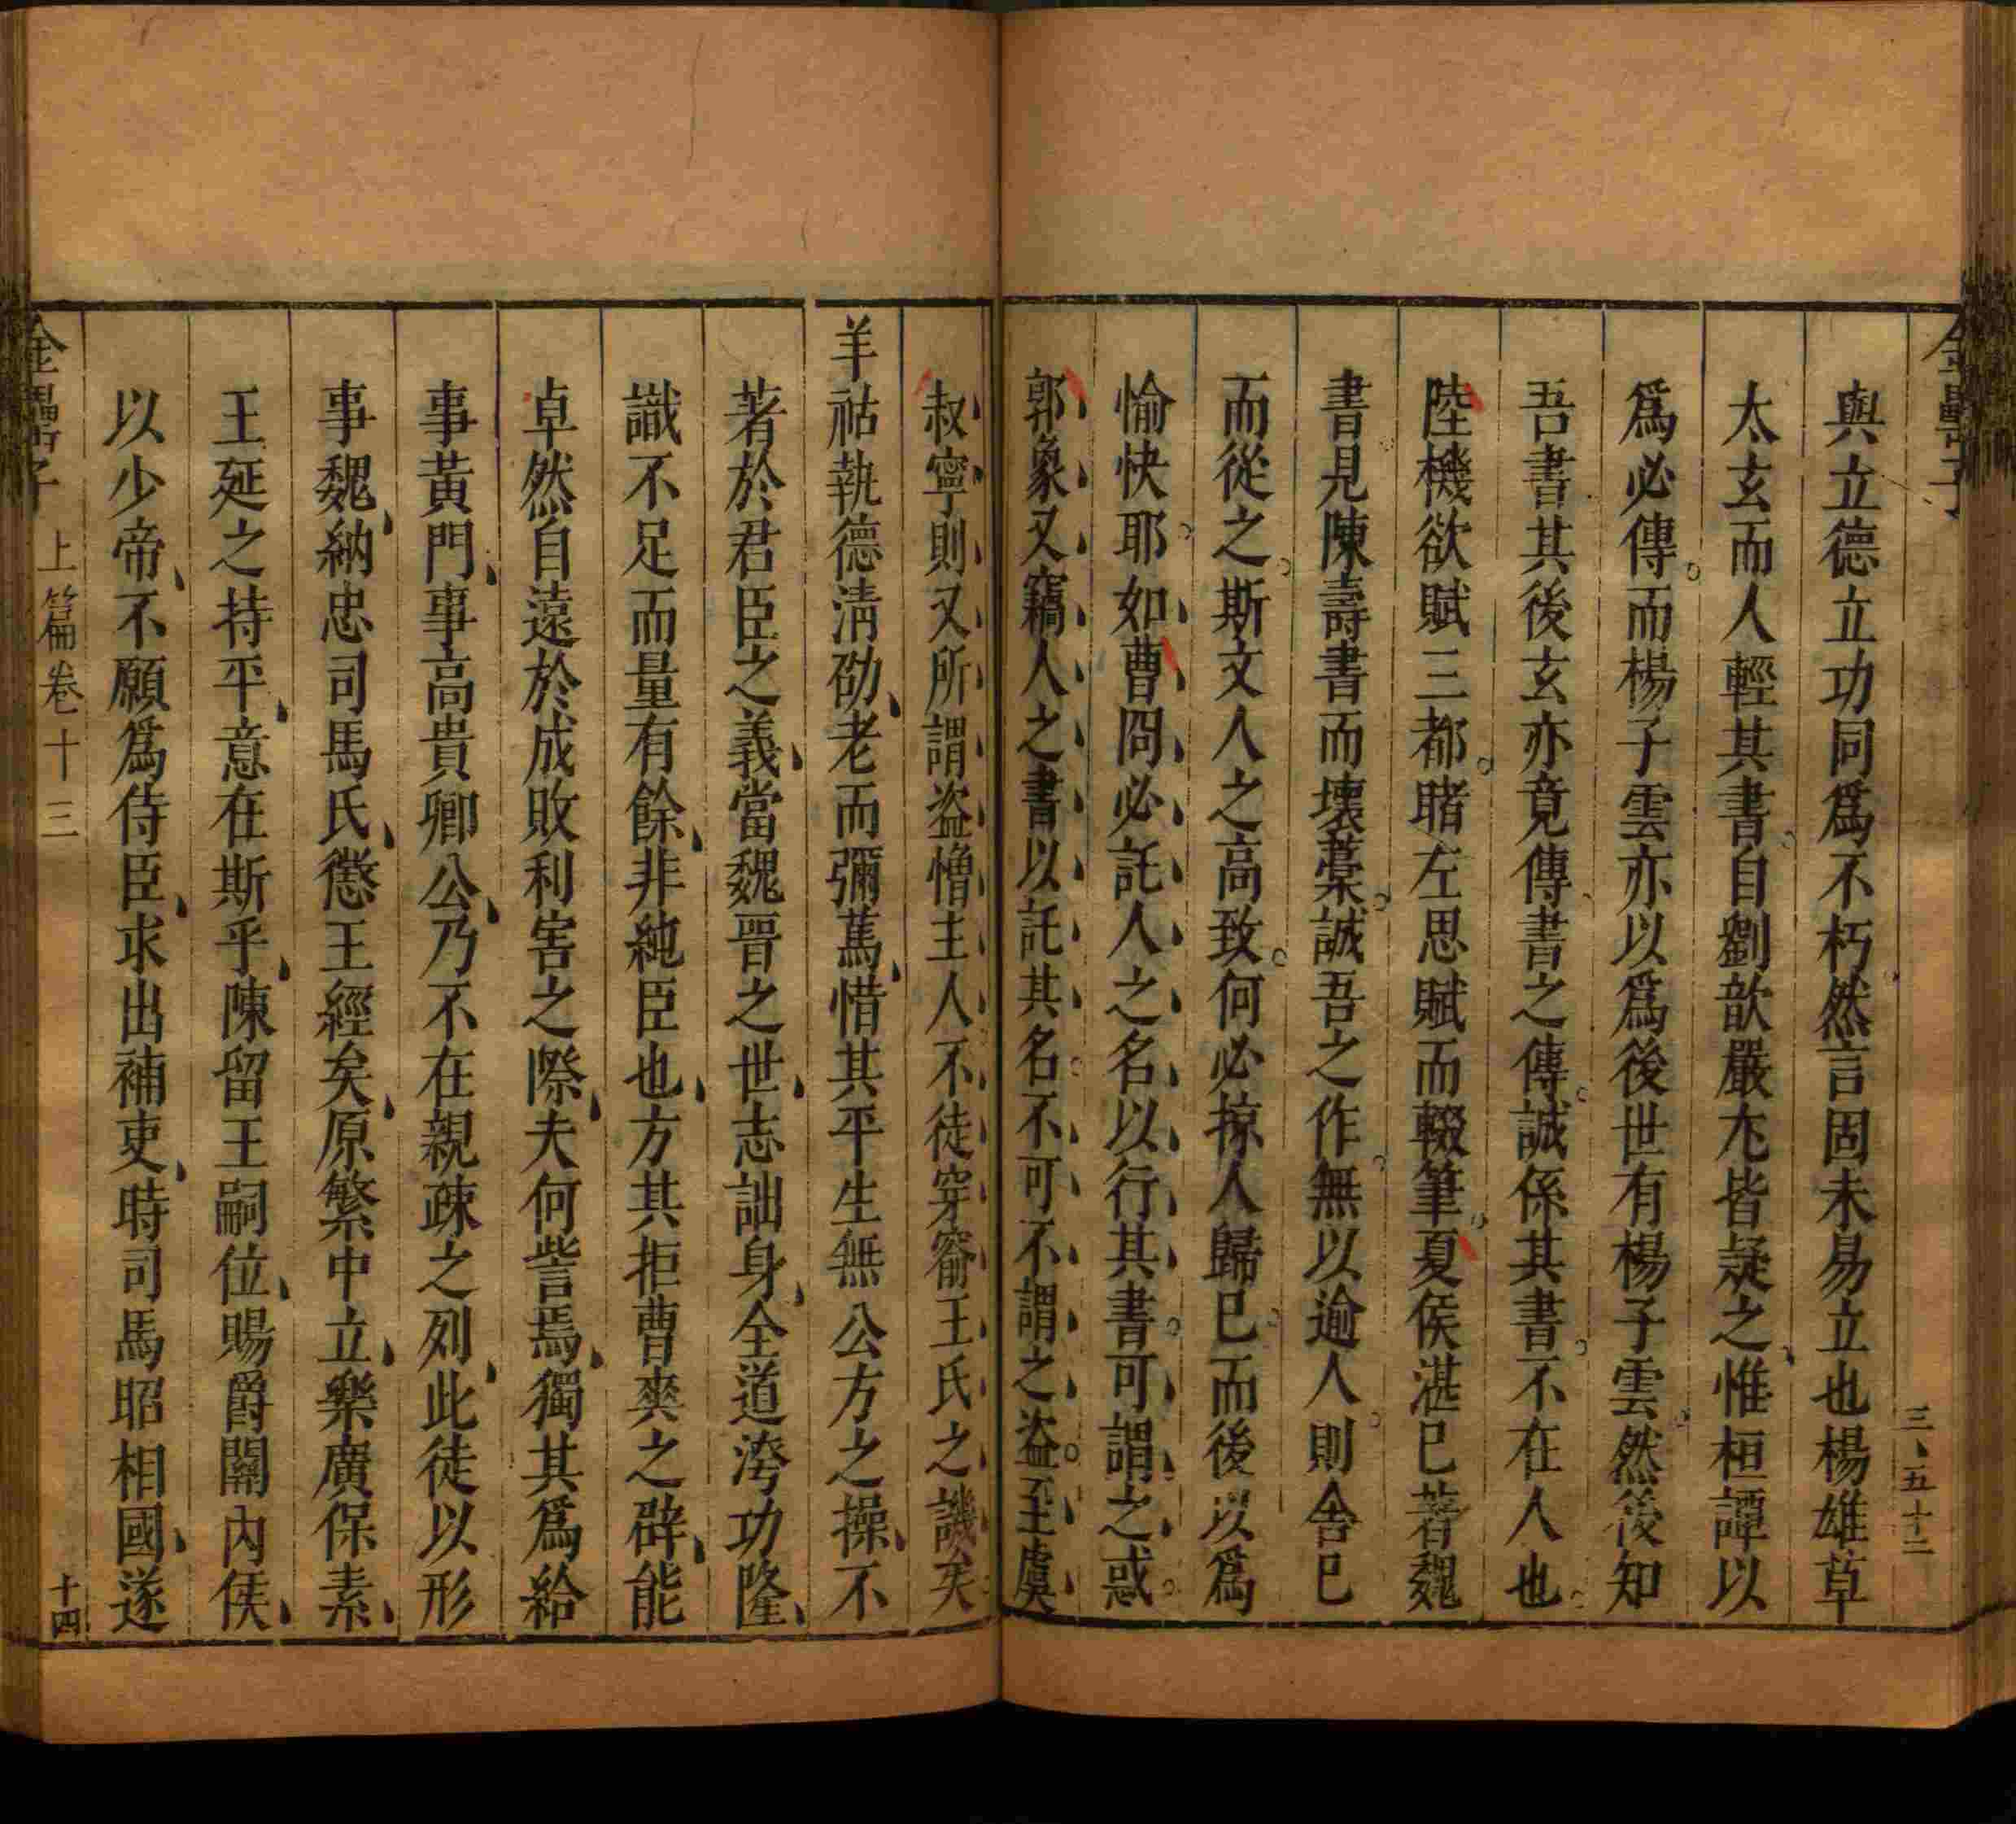 三、五十二
與立德立功同爲不朽然言固未易立也楊雄草
太玄而人輕其書自劉歆嚴尤皆疑之惟桓譚以
爲必傳而楊子雲亦以爲後世有楊子雲然後知
吾書其後玄亦竟傳書之傳誠係其書不在人也
陸機欲賦三都睹左思賦而輟筆夏侯湛已著魏
書見陳壽書而壞藁誠吾之作無以逾人則舍已
而從之斯文人之高致何必掠人歸已而後以爲
愉快耶如曹冏必託人之名以行其書可謂之惑
郭象又竊人之書以託其名不可不謂之盜至虞
叔寧則又所謂盜憎主人不徒穿窬王氏之譏矣
羊祜執德淸劭老而彌篤惜其平生無公方之操不
著於君臣之義當魏晉之世志詘身全道洿功隆
識不足而量有餘非純臣也方其拒曹爽之辟能
卓然自遠於成敗利害之際夫何訾焉獨其爲給
事黃門事高貴鄉公乃不在親疎之列此徒以形
事魏納忠司馬氏懲王經矣原繁中立樂廣保素
王延之持平意在斯乎陳留王嗣位賜爵關內侯
以少帝不願爲侍臣求出補吏時司馬昭相國遂
金罍子 上篇卷十三 十四